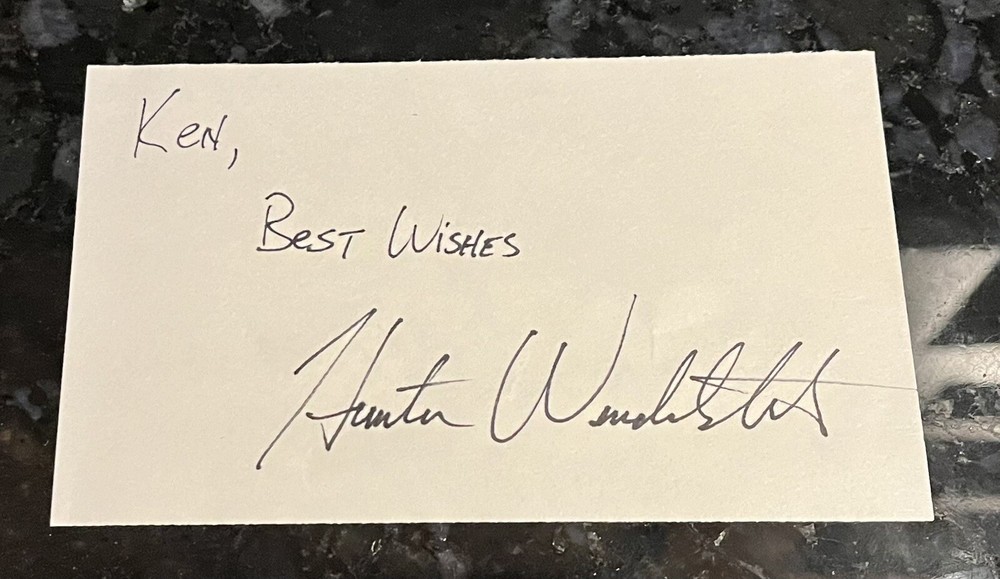 Ken,
Best Wishes
Hunter Wendelstedt